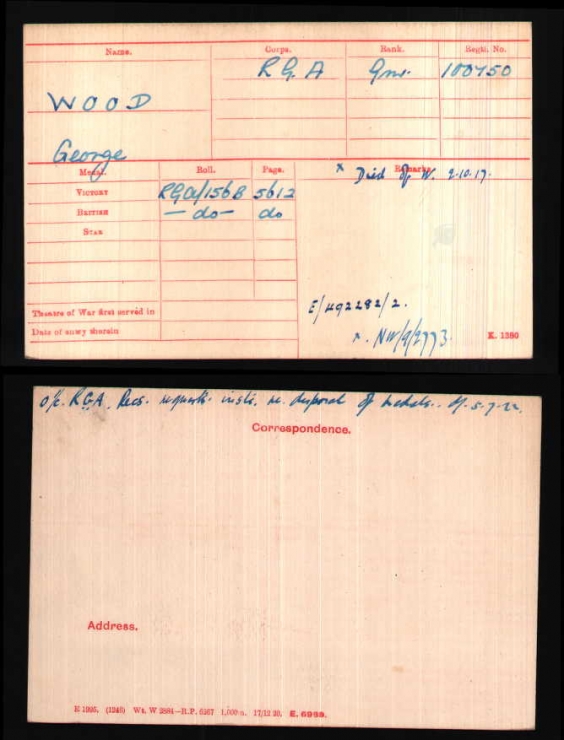 Name. Corps. Rank. Regtl. No.
WOOD R.G.A Gnr. 100450
George
Medal. Roll. Page. Remarks.
VICTORY RGA/156B 5612 x Died of W. 9.10.17.
BRITISH — do — do
STAR
Theatre of War first served in E/HQ2282/2.
Date of entry therein x. NW/9/2773. K. 1380
O/c. R.G.A. Recs. requests insts. re. disposal of medals. d/. 5-7-22.
Correspondence.
Address.
E 1995. (1248) Wt. W 2884—R.P. 6267 1,000m. 17/12 20. E. 6998.